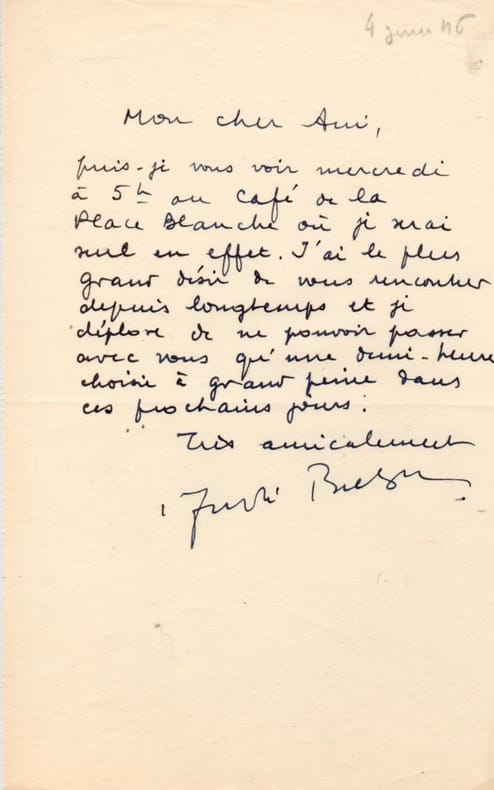 Mon cher Ami,
puis-je vous voir mercredi
à 5h au Café de la
Place Blanche où je serai
seul en effet. J'ai le plus
grand désir de vous rencontrer
depuis longtemps et je
déplore de ne pouvoir passer
avec vous qu'une demi-heure
choisie à grand peine dans
ces prochains jours.
Très amicalement
André Breton